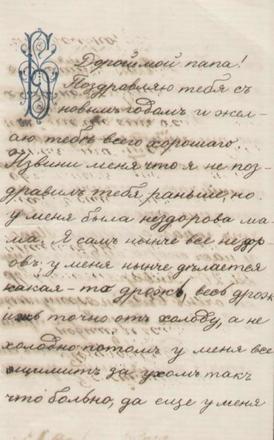 Дорогой мой папа!
Поздравляю тебя съ
новымъ годомъ и жел-
аю тебѣ всего хорошаго.
Извини меня что я не поз-
дравилъ тебя раньше, но
у меня была нездорова ма-
ма. Я самъ нынче все нездр-
овъ у меня нынче дѣлается
какая-то дрожь, весь дрож
точно отъ холоду, а не
холодно потомъ у меня все
за ухомъ такъ
что больно, да еще у меня